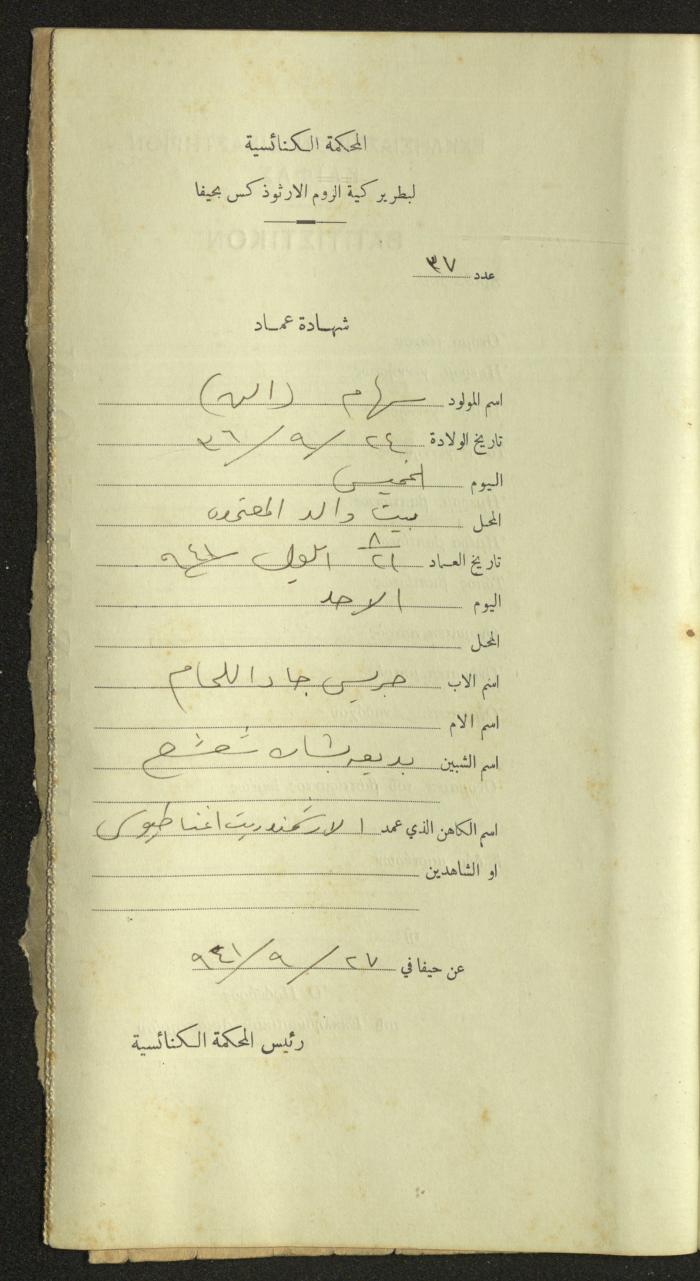 المحكمة الكنائسية
لبطريركية الروم الارثوذكس بحيفا
عدد ٣٧
شهادة عماد
اسم المولود سهام
تاريخ الولادة ٢٤/٩/٣٦
اليوم الخميس
المحل بيت والد المعتمده
تاريخ العماد ٨/٢١ ايلول ٩٤١
اليوم الاحد
المحل
اسم الاب جريس جاد اللحام
اسم الام
اسم الشبين بديعه بشاره شعشع
اسم الكاهن الذي عمد الارشمندريت اغناطيوس
او الشاهدين
عن حيفا في ٢٧/٩/٩٤١
رئيس المحكمة الكنائسية